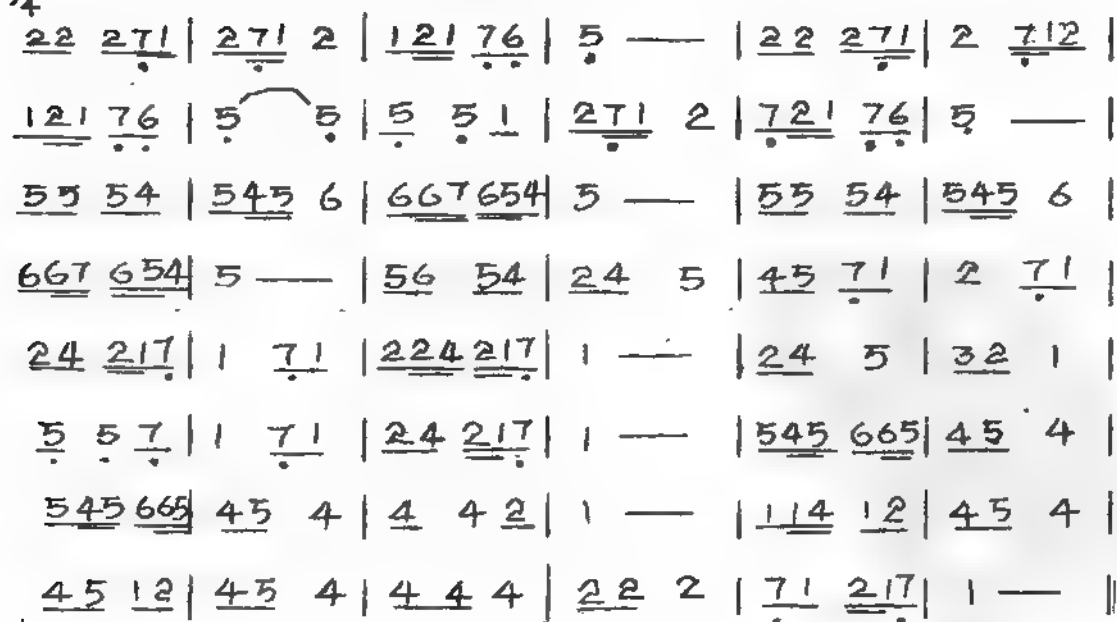 4
22 271 | 271 2 | 121 76 | 5 — | 22 271 | 2 712 |
121 76 | 5 5 | 5 5 1 | 271 2 | 721 76 | 5 — |
55 54 | 545 6 | 667 654 | 5 — | 55 54 | 545 6 |
667 654 | 5 — | 56 54 | 24 5 | 45 71 | 2 71 |
24 217 | 1 71 | 224 217 | 1 — | 24 5 | 32 1 |
5 5 7 | 1 71 | 24 217 | 1 — | 545 665 | 45 4 |
545 665 | 45 4 | 4 4 2 | 1 — | 114 12 | 45 4 |
45 12 | 45 4 | 4 4 4 | 22 2 | 71 217 | 1 — ‖